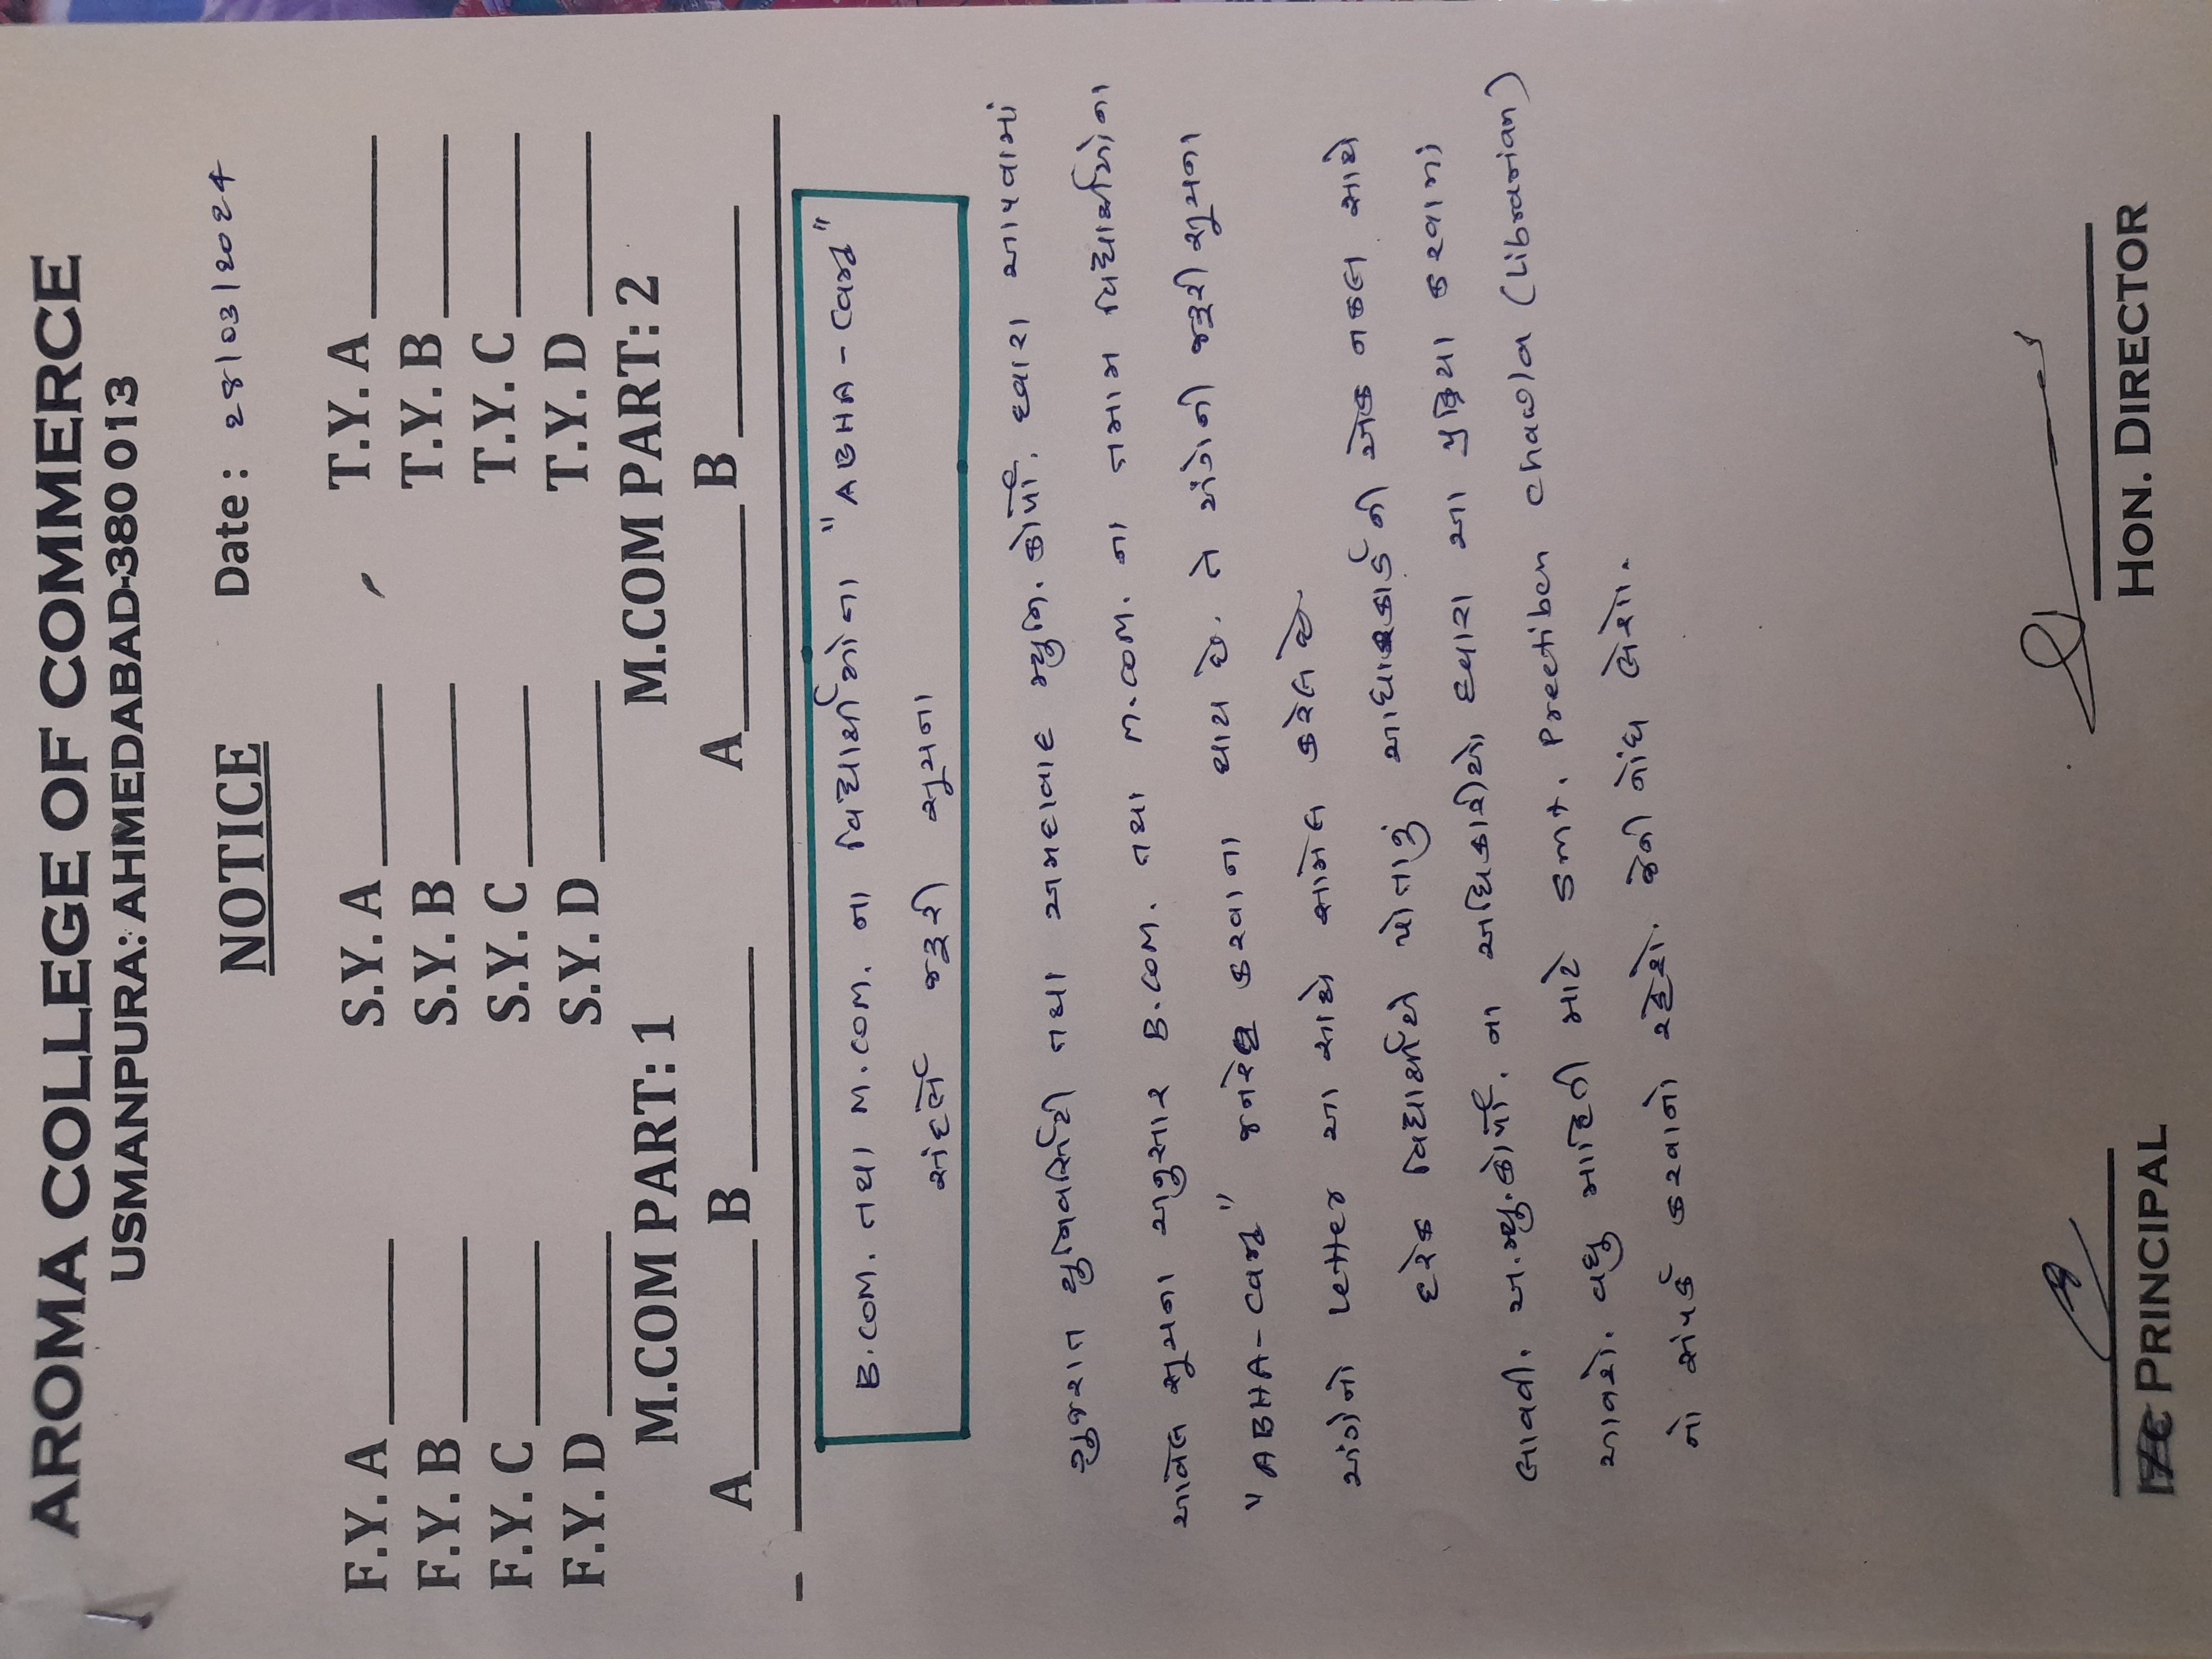 AROMA COLLEGE OF COMMERCE
USMANPURA: AHMEDABAD-380 013
NOTICE Date: 28/03/2024
F.Y. A S.Y. A T.Y. A
F.Y. B S.Y. B T.Y. B
F.Y. C S.Y. C T.Y. C
F.Y. D S.Y. D T.Y. D
M.COM PART: 1 M.COM PART: 2
A B A B
B.COM. તથા M.COM. ના વિદ્યાર્થીઓના "ABHA-Card"
સંદર્ભે જરૂરી સૂચના
ગુજરાત યુનિવર્સિટી તથા અમદાવાદ મ્યુનિ. કોર્પો. દ્વારા આપવામાં
આવેલ સૂચના અનુસાર B.COM. તથા M.COM. ના તમામ વિદ્યાર્થીઓના
"ABHA-Card" જનરેટ કરવાના થાય છે. તે અંગેની જરૂરી સૂચના
અંગેનો Letter આ સાથે સામેલ કરેલ છે.
દરેક વિદ્યાર્થીએ પોતાનું આધારકાર્ડ ની એક નકલ સાથે
લાવવી. અ.મ્યુ.કોર્પો. ના અધિકારીઓ દ્વારા આ પ્રક્રિયા કરવામાં
આવશે. વધુ માહિતી માટે Smt. Preetiben Chavda (Librarian)
નો સંપર્ક કરવાનો રહેશે. જેની નોંધ લેશો.
PRINCIPAL HON. DIRECTOR